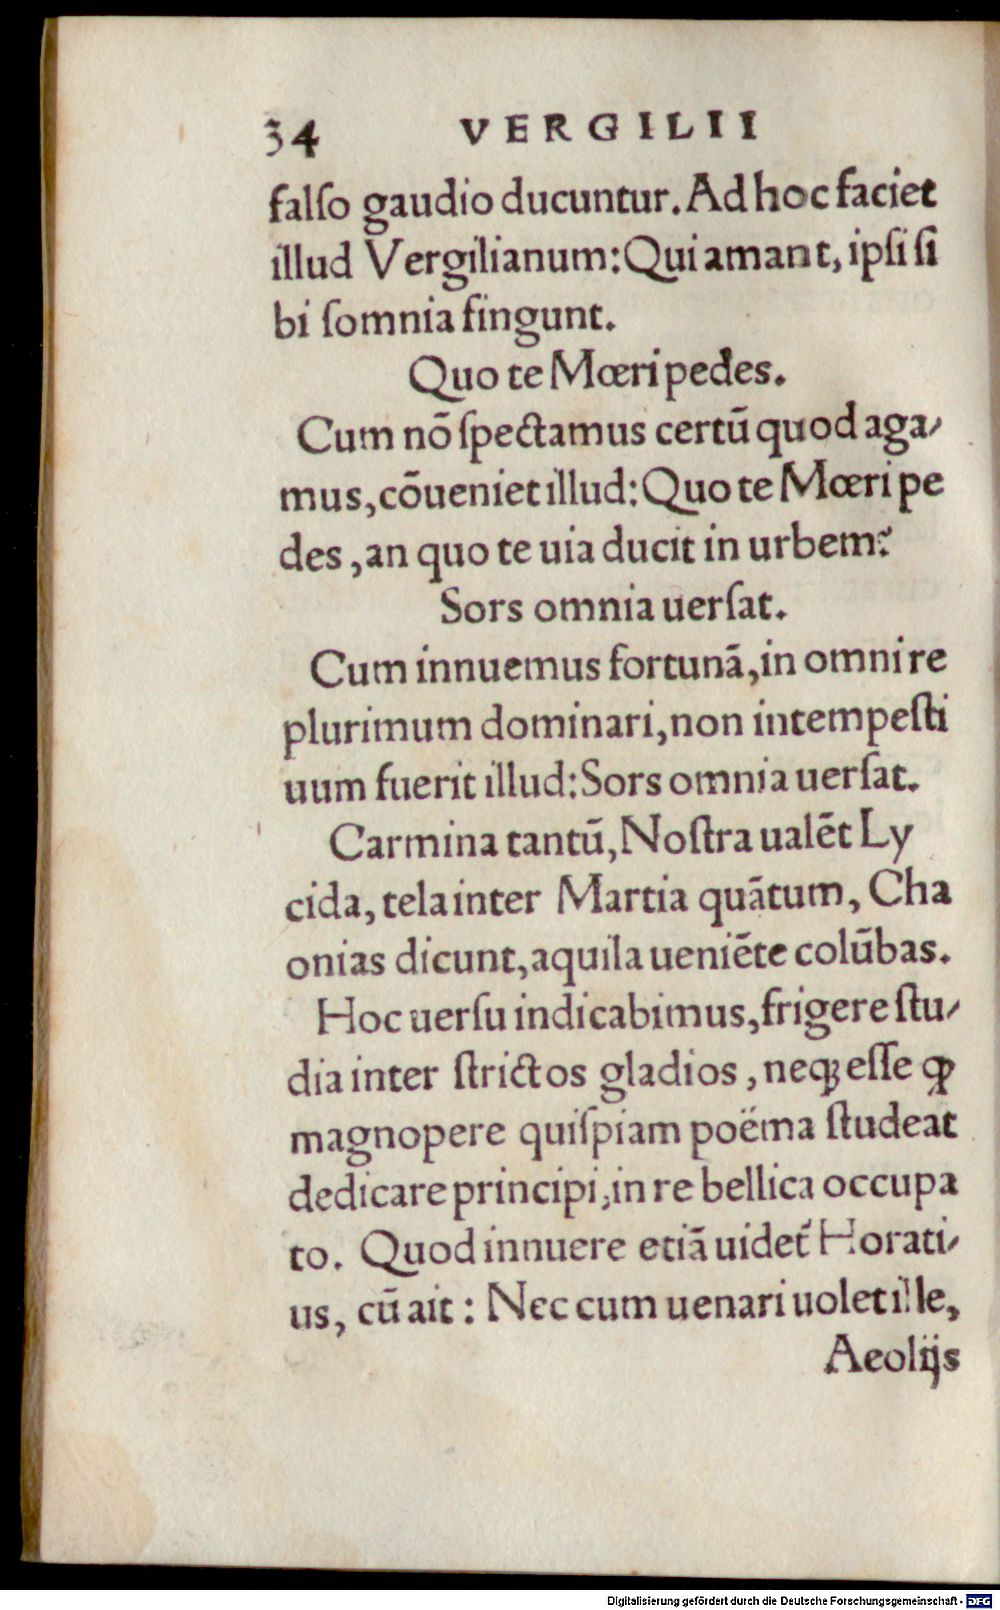 34 VERGILII
falſo gaudio ducuntur. Ad hoc faciet
illud Vergilianum: Qui amant, ipſi ſi
bi ſomnia fingunt.
Quo te Mœri pedes.
Cum nō ſpectamus certū quod aga⸗
mus, cōueniet illud: Quo te Mœri pe
des, an quo te uia ducit in urbem?
Sors omnia uerſat.
Cum innuemus fortunā, in omni re
plurimum dominari, non intempeſti
uum fuerit illud: Sors omnia uerſat.
Carmina tantū, Noſtra ualēt Ly
cida, tela inter Martia quātum, Cha
onias dicunt, aquila ueniēte colūbas.
Hoc uerſu indicabimus, frigere ſtu⸗
dia inter ſtrictos gladios, neqꝫ eſſe ꝙ
magnopere quiſpiam poëma ſtudeat
dedicare principi, in re bellica occupa
to. Quod innuere etiā uidet᷑ Horati⸗
us, cū ait: Nec cum uenari uolet ille,
Aeolijs
Digitalisierung gefördert durch die Deutsche Forschungsgemeinschaft - DFG